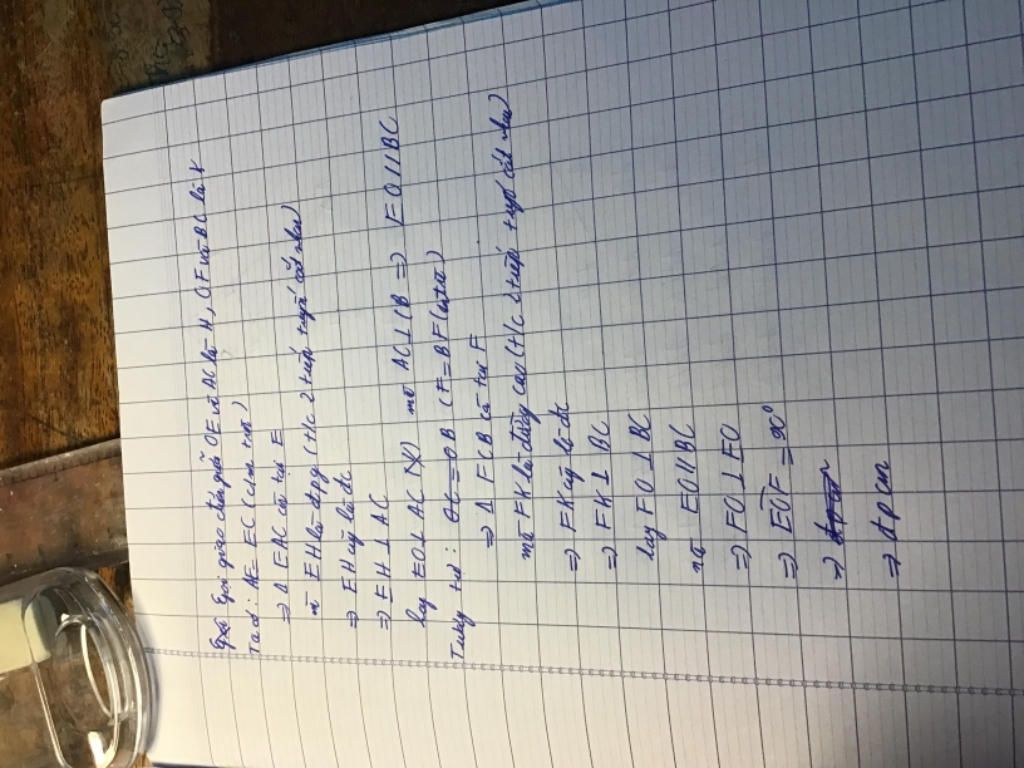 Gọi giao điểm giữa OE và AC là H, OF và BC là K
Ta có: AE = EC (cmt)
⇒ Δ EAC cân tại E
mà EH là đtpg (t/c 2 tiếp tuyến cắt nhau)
⇒ EH cũg là đc
⇒ EH ⊥ AC
hay EO ⊥ AC mà AC ⊥ CB ⇒ EO // BC
Tương tự: = B (F = BF
⇒ Δ FCB cân tại F
mà FK là đường cao (t/c 2 tiếp tuyến cắt nhau)
⇒ FK cũg là đc
⇒ FK ⊥ BC
hay FO ⊥ BC
mà EO // BC
⇒ FO ⊥ EO
⇒ EOF = 90°
⇒
⇒ đpcm